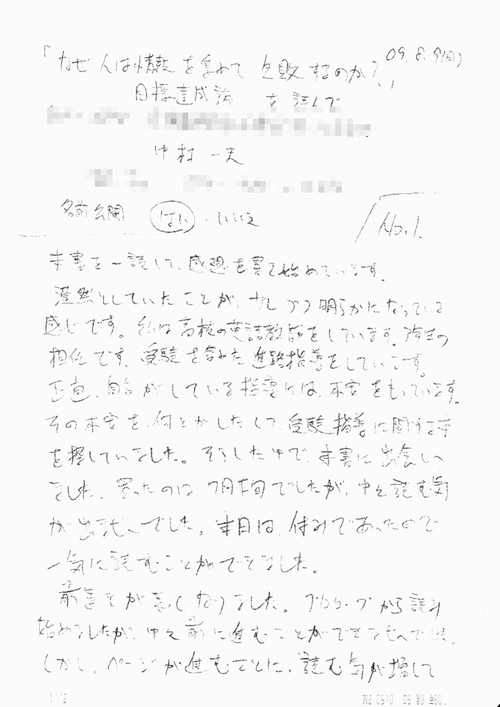 09.8.9(日)
「なぜ人は情報を集めて失敗するのか?」
目標達成論 を読んで
中村 一夫
名前公開 はい・いいえ
No.1.
本書を一読して、感想を書き始めています。
漠然としていたことが、少しづつ明らかになっている
感じです。私は高校の英語教師をしています。3年生の
担任です。受験を含めた進路指導をしています。
正直、自分がしている指導には、不安をもっています。
その不安を、何とかしたくて、受験指導に関する本
を探していました。そうした中で、本書に出会い
ました。買ったのは7月下旬でしたが、中々読む気
が出ませんでした。本日は、休みであったので
一気に読むことができました。
前置きが長くなりました。プロローグから読み
始めましたが、中々前に進むことができませんでした。
しかし、ページが進むごとに、読む気が増して